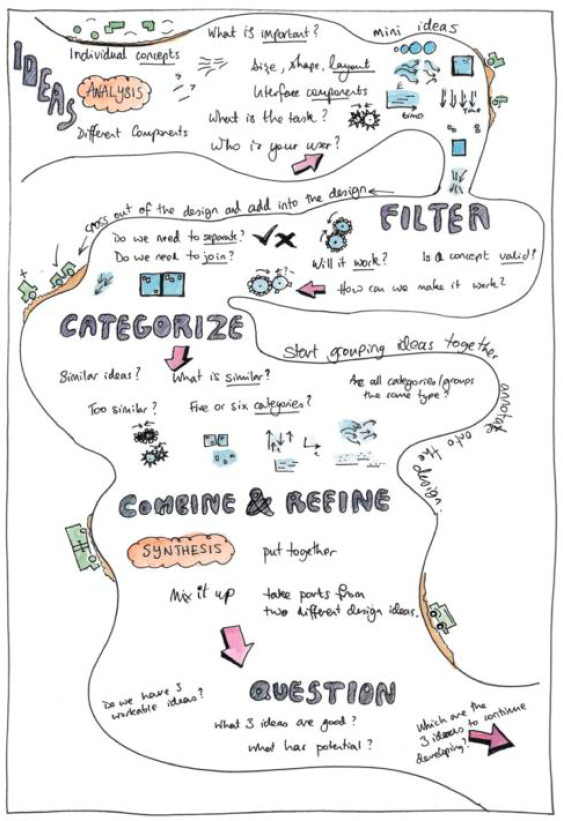 IDEAS
What is important?
mini ideas
Individual concepts
Size, shape, layout
ANALYSIS
Interface components
What is the task?
time
time
Different Components
Who is your user?
cross out of the design and add into the design
FILTER
Do we need to separate?
Do we need to join?
Will it work?
Is a concept valid?
How can we make it work?
CATEGORIZE
Start grouping ideas together
annotate onto the design.
Similar ideas?
What is similar?
Are all categories/groups
the same type?
Too similar?
Five or six categories?
COMBINE & REFINE
SYNTHESIS
put together
Mix it up
take parts from
two different design ideas.
QUESTION
Do we have 3
workable ideas?
What 3 ideas are good?
What has potential?
Which are the
3 ideas to continue
developing?